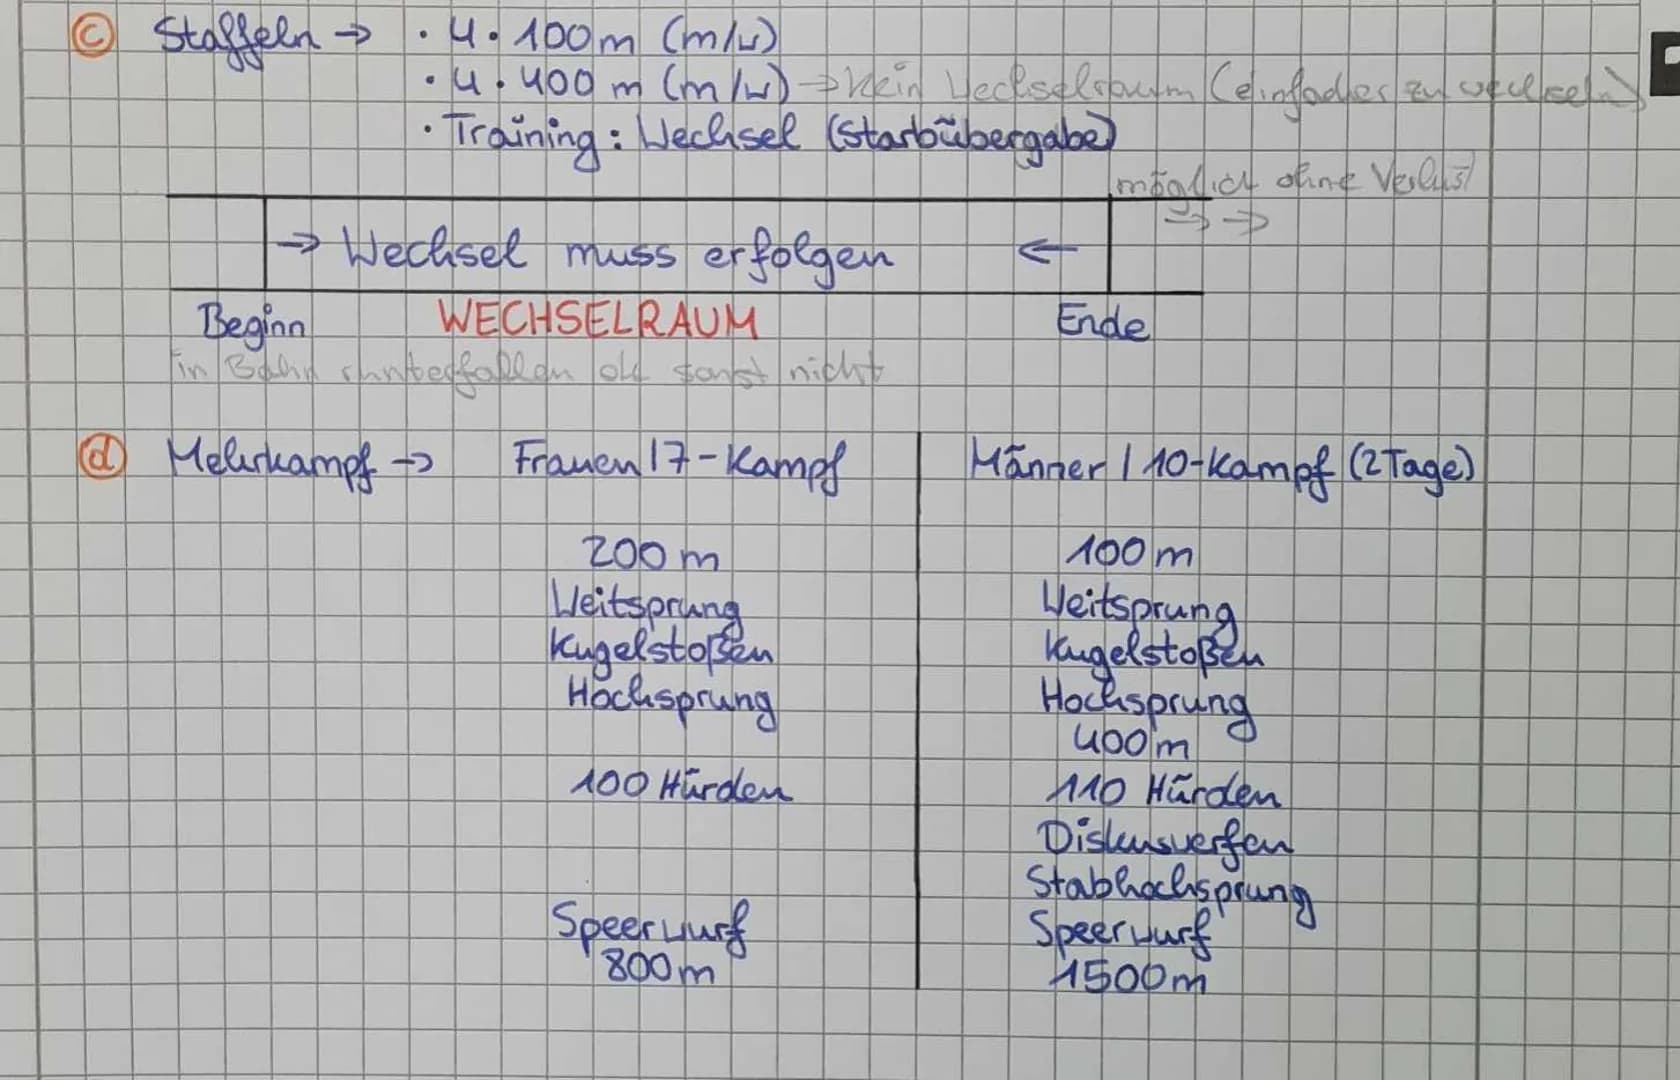 c Staffeln → · 4 · 100m (m/w)
· 4 · 400 m (m/w) → kein Wechselraum (einfacher zu wechseln)
· Training: Wechsel (Stabübergabe)
möglich ohne Verlust
→ Wechsel muss erfolgen ←
Beginn WECHSELRAUM Ende
in Bahn runterfallen ok sonst nicht
d Mehrkampf → Frauen | 7-Kampf Männer | 10-Kampf (2 Tage)
200 m 100 m
Weitsprung Weitsprung
Kugelstoßen Kugelstoßen
Hochsprung Hochsprung
400 m
100 Hürden 110 Hürden
Diskuswerfen
Stabhochsprung
Speerwurf Speerwurf
800 m 1500 m